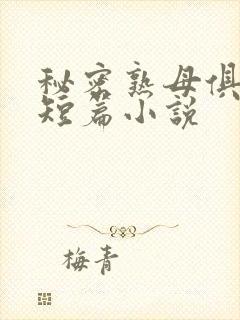 秘密熟母俱
短篇小说
梅青